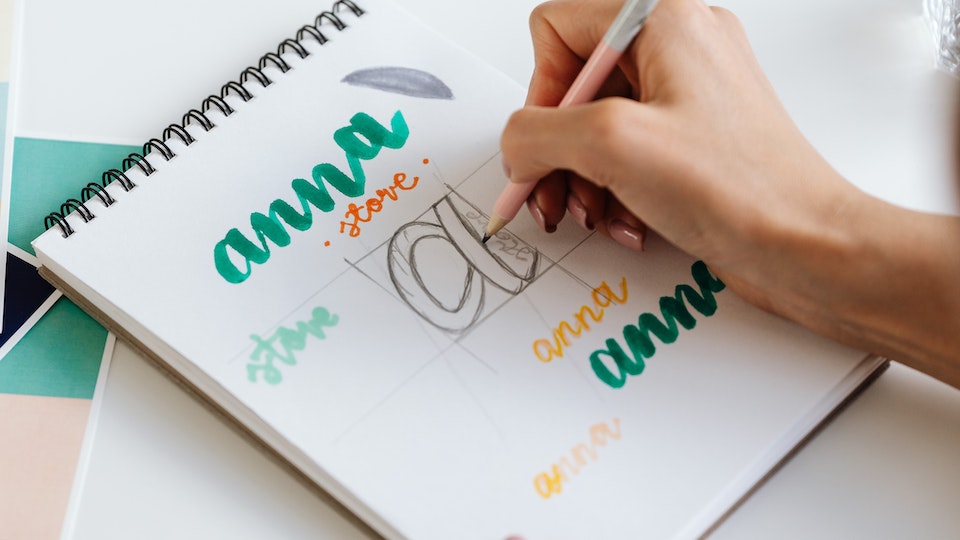 anna
. store .
a
store
anna
anna
anna